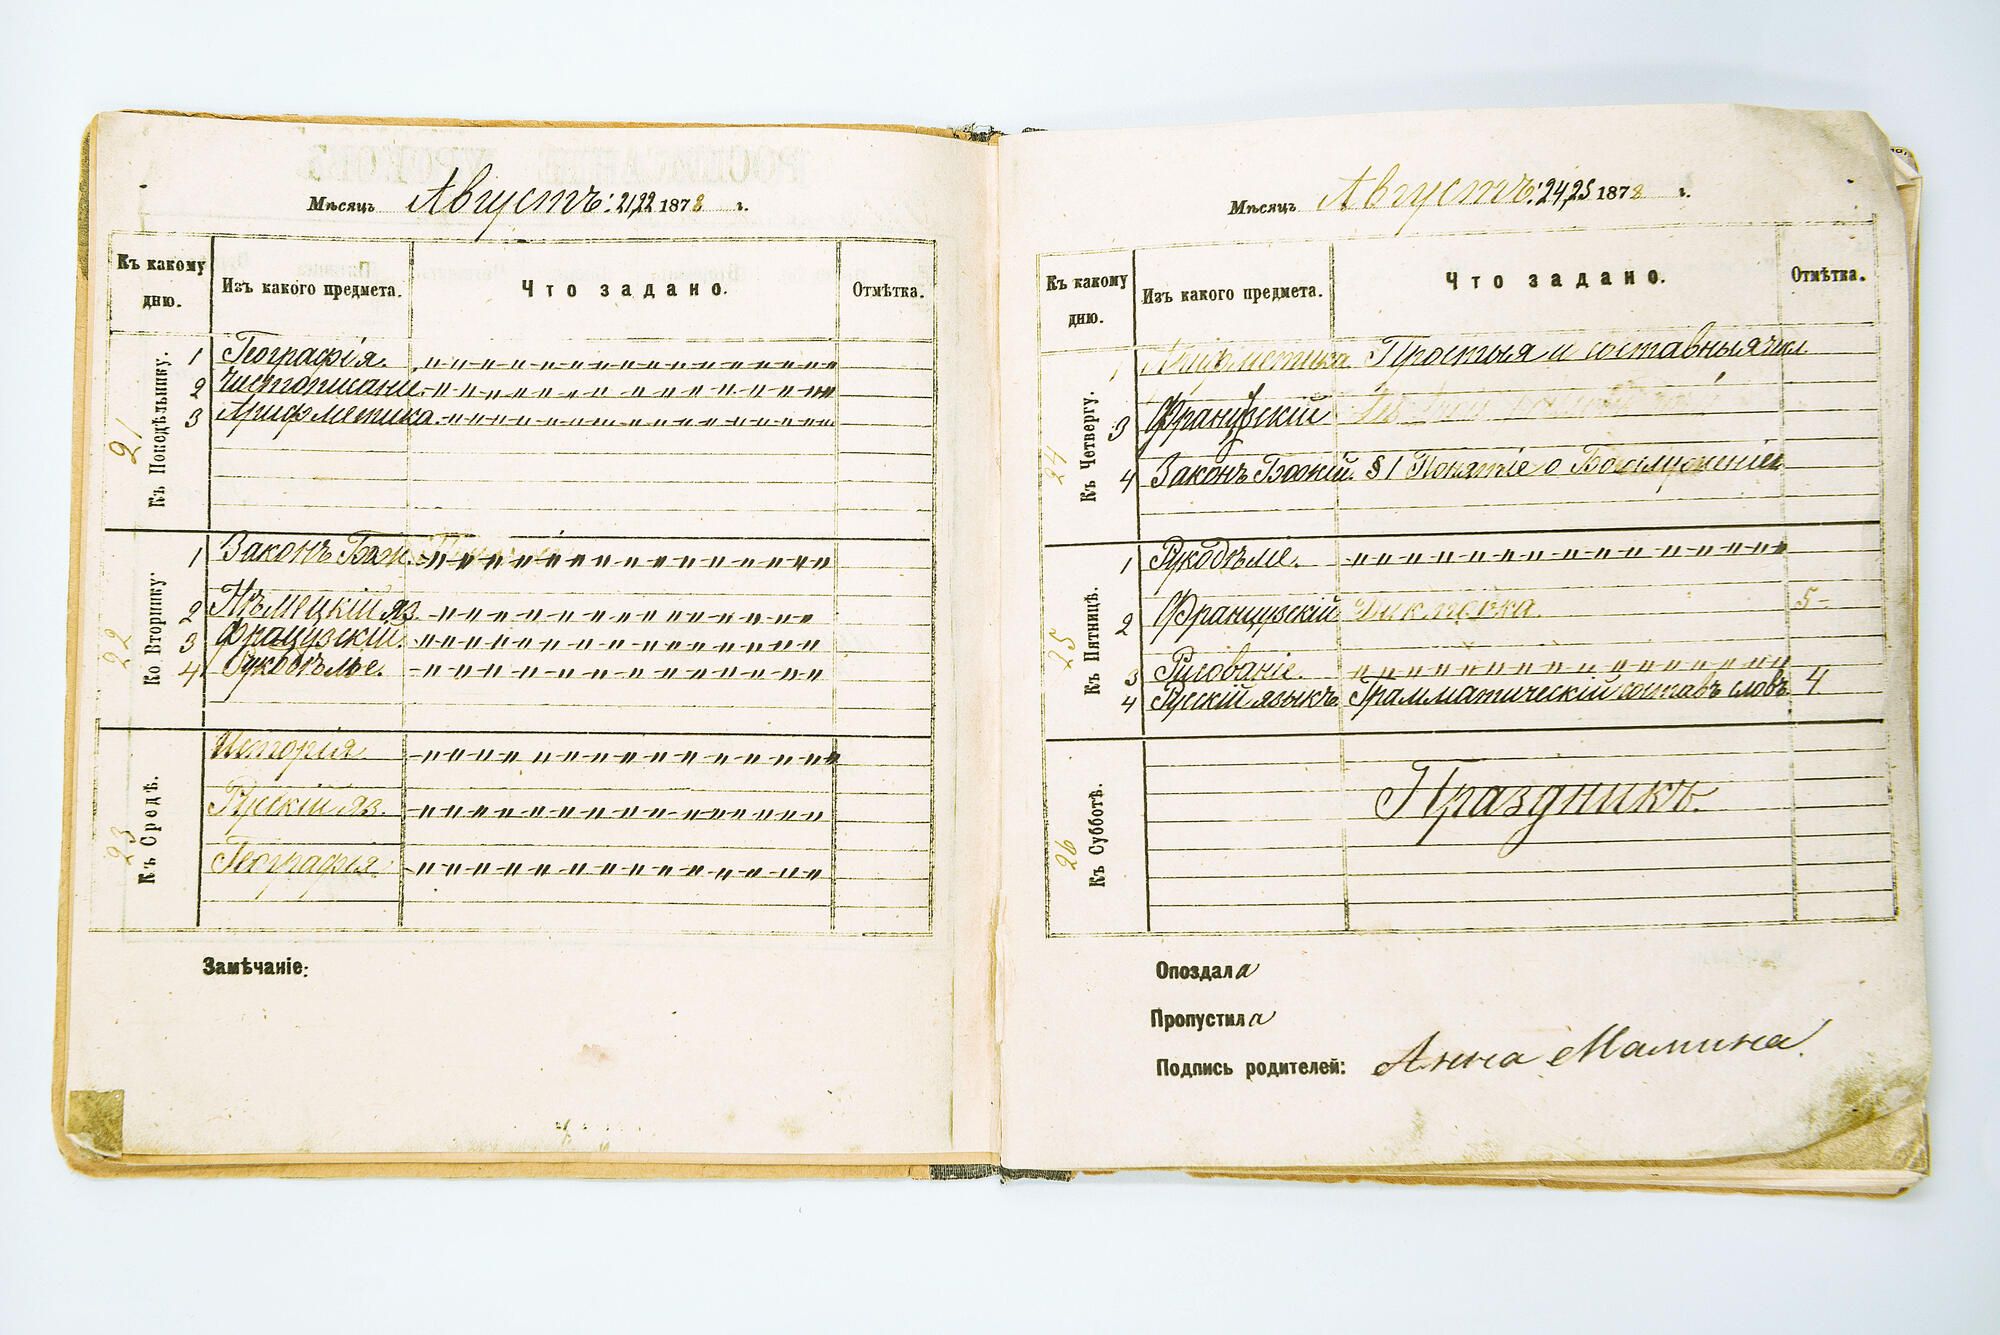 Мѣсяцъ Августъ: 21,22 1878 г.
Къ какому дню. Изъ какого предмета. Что задано. Отмѣтка.
21 Къ Понедѣльнику.
1 Географія. " " " " " " " " " " " " " "
2 Чистописаніе. " " " " " " " " " " " " " "
3 Арифметика. " " " " " " " " " " " " " "
22 Ко Вторнику.
1 Законъ Бож. " " " " " " " " " " " " " "
2 Нѣмецкій яз. " " " " " " " " " " " " " "
3 Французскій. " " " " " " " " " " " " " "
4 Рукодѣлье. " " " " " " " " " " " " " "
23 Къ Средѣ.
Исторія. " " " " " " " " " " " " " "
Русскій яз. " " " " " " " " " " " " " "
Географія. " " " " " " " " " " " " " "
Замѣчаніе:
Мѣсяцъ Августъ: 24,25 1878 г.
Къ какому дню. Изъ какого предмета. Что задано. Отмѣтка.
24 Къ Четвергу.
1 Арифметика. Простыя и составныя
3 Французскій
4 Законъ Божій. § 1 Понятіе о Богослуженіи
25 Къ Пятницѣ.
1 Рукодѣлье. " " " " " " " " " " " " " "
2 Французскій Диктовка. 5-
3 Рисованіе. " " " " " " " " " " " " " "
4 Русскій языкъ. Грамматическій составъ словъ 4
26 Къ Субботѣ.
Праздникъ.
Опоздала
Пропустила
Подпись родителей: Анна Мамина.